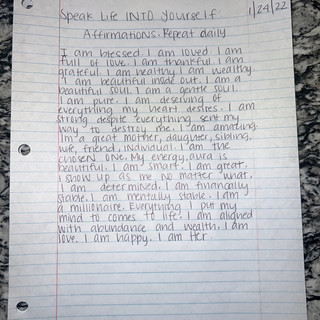 Speak Life INTO Yourself 1/24/22
Affirmations. Repeat daily
I am blessed. I am loved. I am
full of love. I am thankful. I am
grateful. I am healthy. I am wealthy.
I am beautiful inside out. I am a
beautiful soul. I am a gentle soul.
I am pure. I am deserving of
everything my heart desires. I am
strong despite everything sent my
way to destroy me. I am amazing.
I'm a great mother, daughter, sibling,
wife, friend, individual. I am the
chosen one. My energy, aura is
beautiful. I am smart. I am great.
I show up as me no matter what.
I am determined. I am financially
stable. I am mentally stable. I am
a millionaire. Everything I put my
mind to comes to life. I am aligned
with abundance and wealth. I am
love. I am happy. I am Her